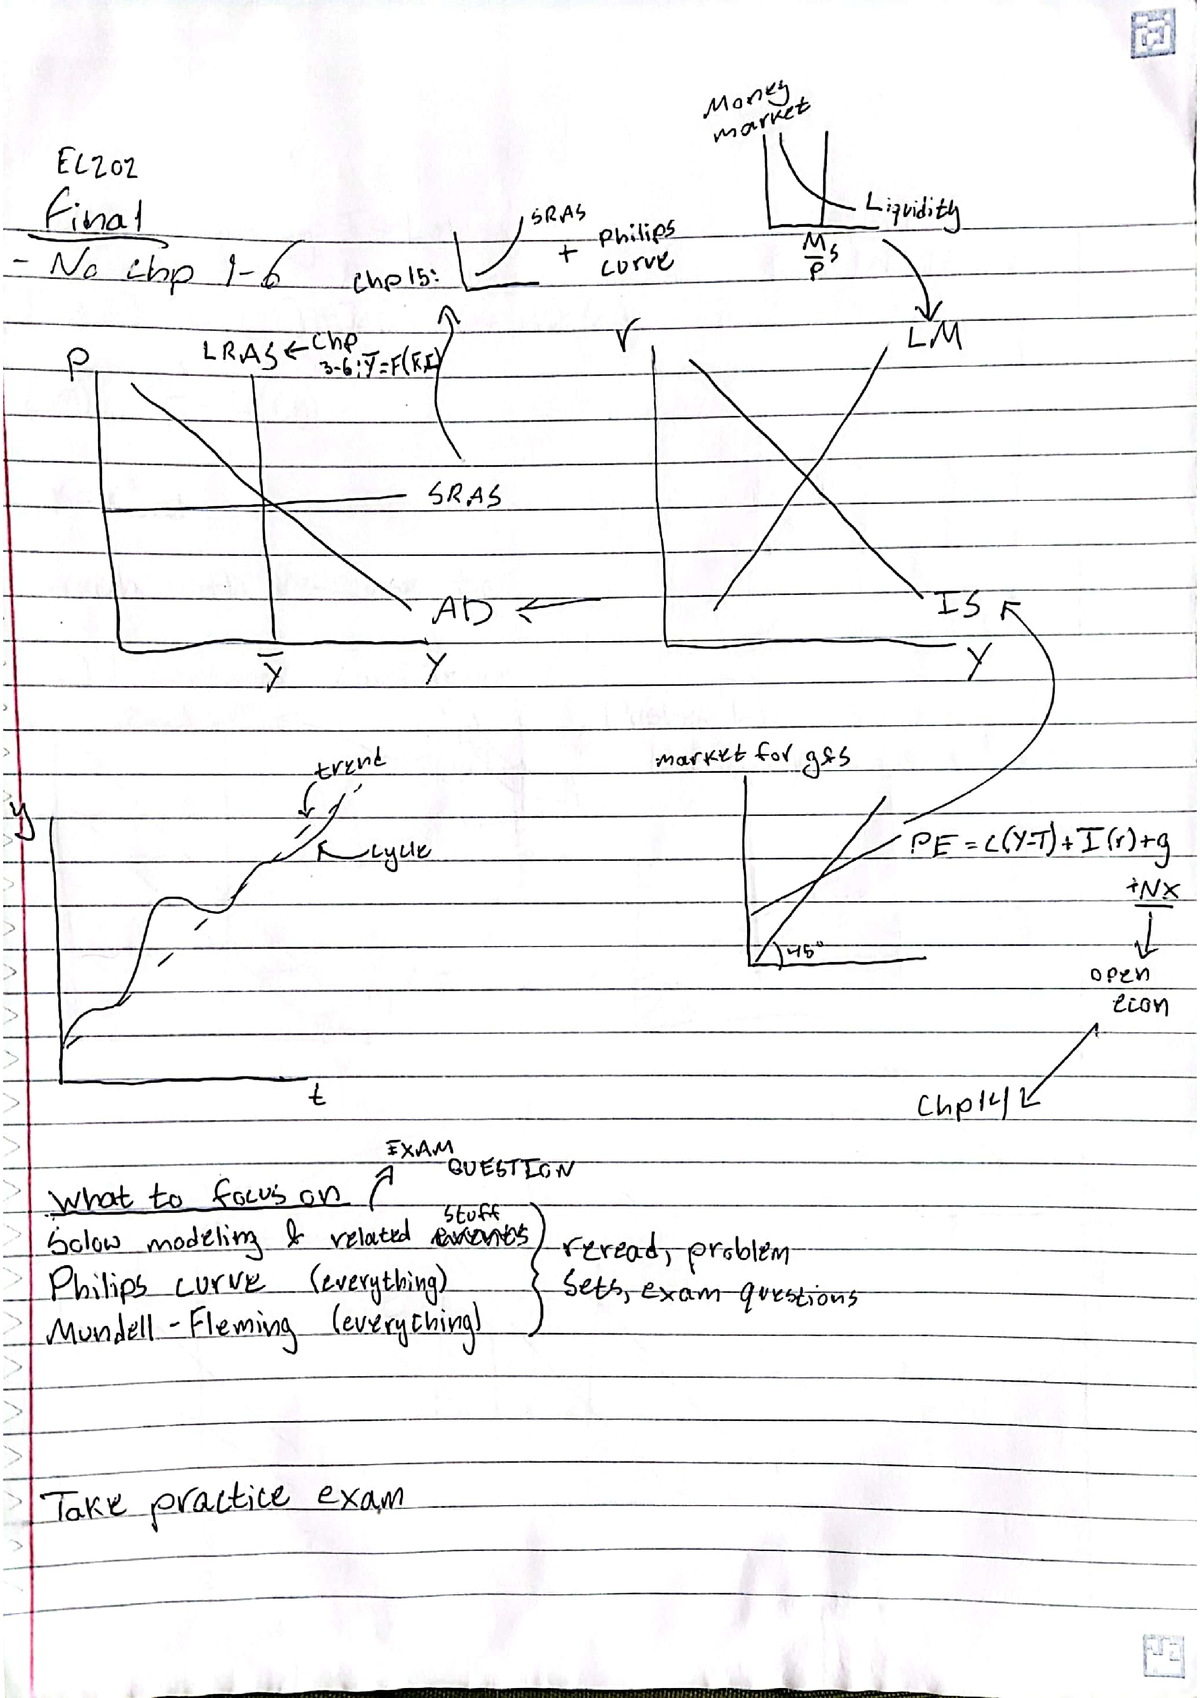 EC202
Final
- No chp 1-6
Chp15:
SRAS
+ Philips
curve
Money
market
Liquidity
M
P
s
LM
r
IS
Y
P
LRAS ← Chp
3-6: Y̅=F(K̅,L̅)
SRAS
AD
Y̅
Y
trend
cycle
y
t
market for g&s
PE = C(Y-T) + I(r) + g
+NX
45°
open
econ
Chp14
EXAM
QUESTION
What to focus on
Solow modeling & related stuff
Philips curve (everything)
Mundell-Fleming (everything)
reread, problem
sets, exam questions
Take practice exam